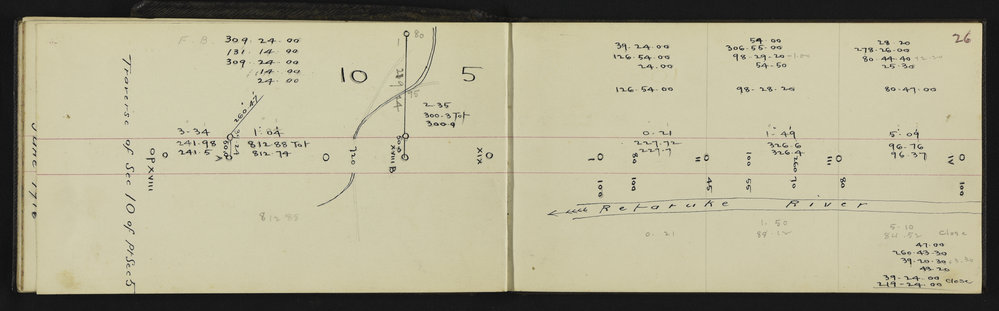 June 1916
Traverse of Sec 10 of P/Sec 5
F. B. 309. 24. 00
131. 14. 00
309. 24. 00
14. 00
24. 00
260.47
3-34
241.98
241.5
OPXVIII
A
1-04
812.88 Tot
812.74
812 88
10
5
80
1
95
2-35
300.8 Tot
300.9
720
XVIII B
XIX
26
39. 24. 00
126. 54. 00
24. 00
126. 54. 00
54. 00
306. 55. 00
98. 29. 20 -1.00
54-50
98. 28. 20
28. 20
278. 26. 00
80. 44. 40
25. 30
80. 47. 00
0. 21
227.72
227.7
1. 49
326.6
326.4
5. 09
96.76
96.37
I
80
II
260
III
IV
100
100
45
55
70
80
100
Retaruke River
0. 21
1. 50
89.12
5-10
84.52 Close
47. 00
260. 43. 30
39. 20. 30
43. 20
39. 24. 00 Close
219-24. 00